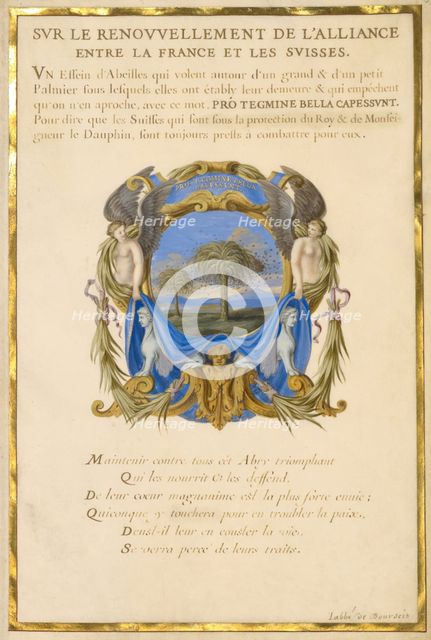 SVR LE RENOVVELLEMENT DE L'ALLIANCE
ENTRE LA FRANCE ET LES SVISSES.
VN Essein d'Abeilles qui volent autour d'un grand & d'un petit
Palmier sous lesquels elles ont étably leur demeure & qui empéchent
qu'on n'en aproche, avec ce mot, PRO TEGMINE BELLA CAPESSVNT.
Pour dire que les Suisses qui sont sous la protection du Roy & de Monsei-
gneur le Dauphin, sont toujours prests à combattre pour eux.
PRO TEGMINE BELLA
CAPESSVNT
Heritage Heritage
Heritage Heritage
Heritage Heritage
Maintenir contre tous cét Abry triomphant
Qui les nourrit et les deffend.
De leur coeur magnanime est la plus forte envie;
Quiconque y touchera pour en troubler la paix,
Deust-il leur en couster la vie,
Se verra percé de leurs traits.
l'abbé de Bourseis